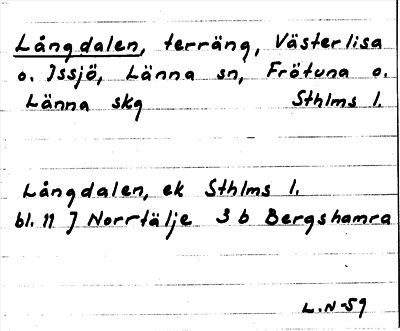 Långdalen, terräng, Västerlisa
o. Issjö, Länna sn, Frötuna o.
Länna skg Sthlms l.
Långdalen, ek Sthlms l.
bl. 11 J Norrtälje 3 b Bergshamra
L.N-59